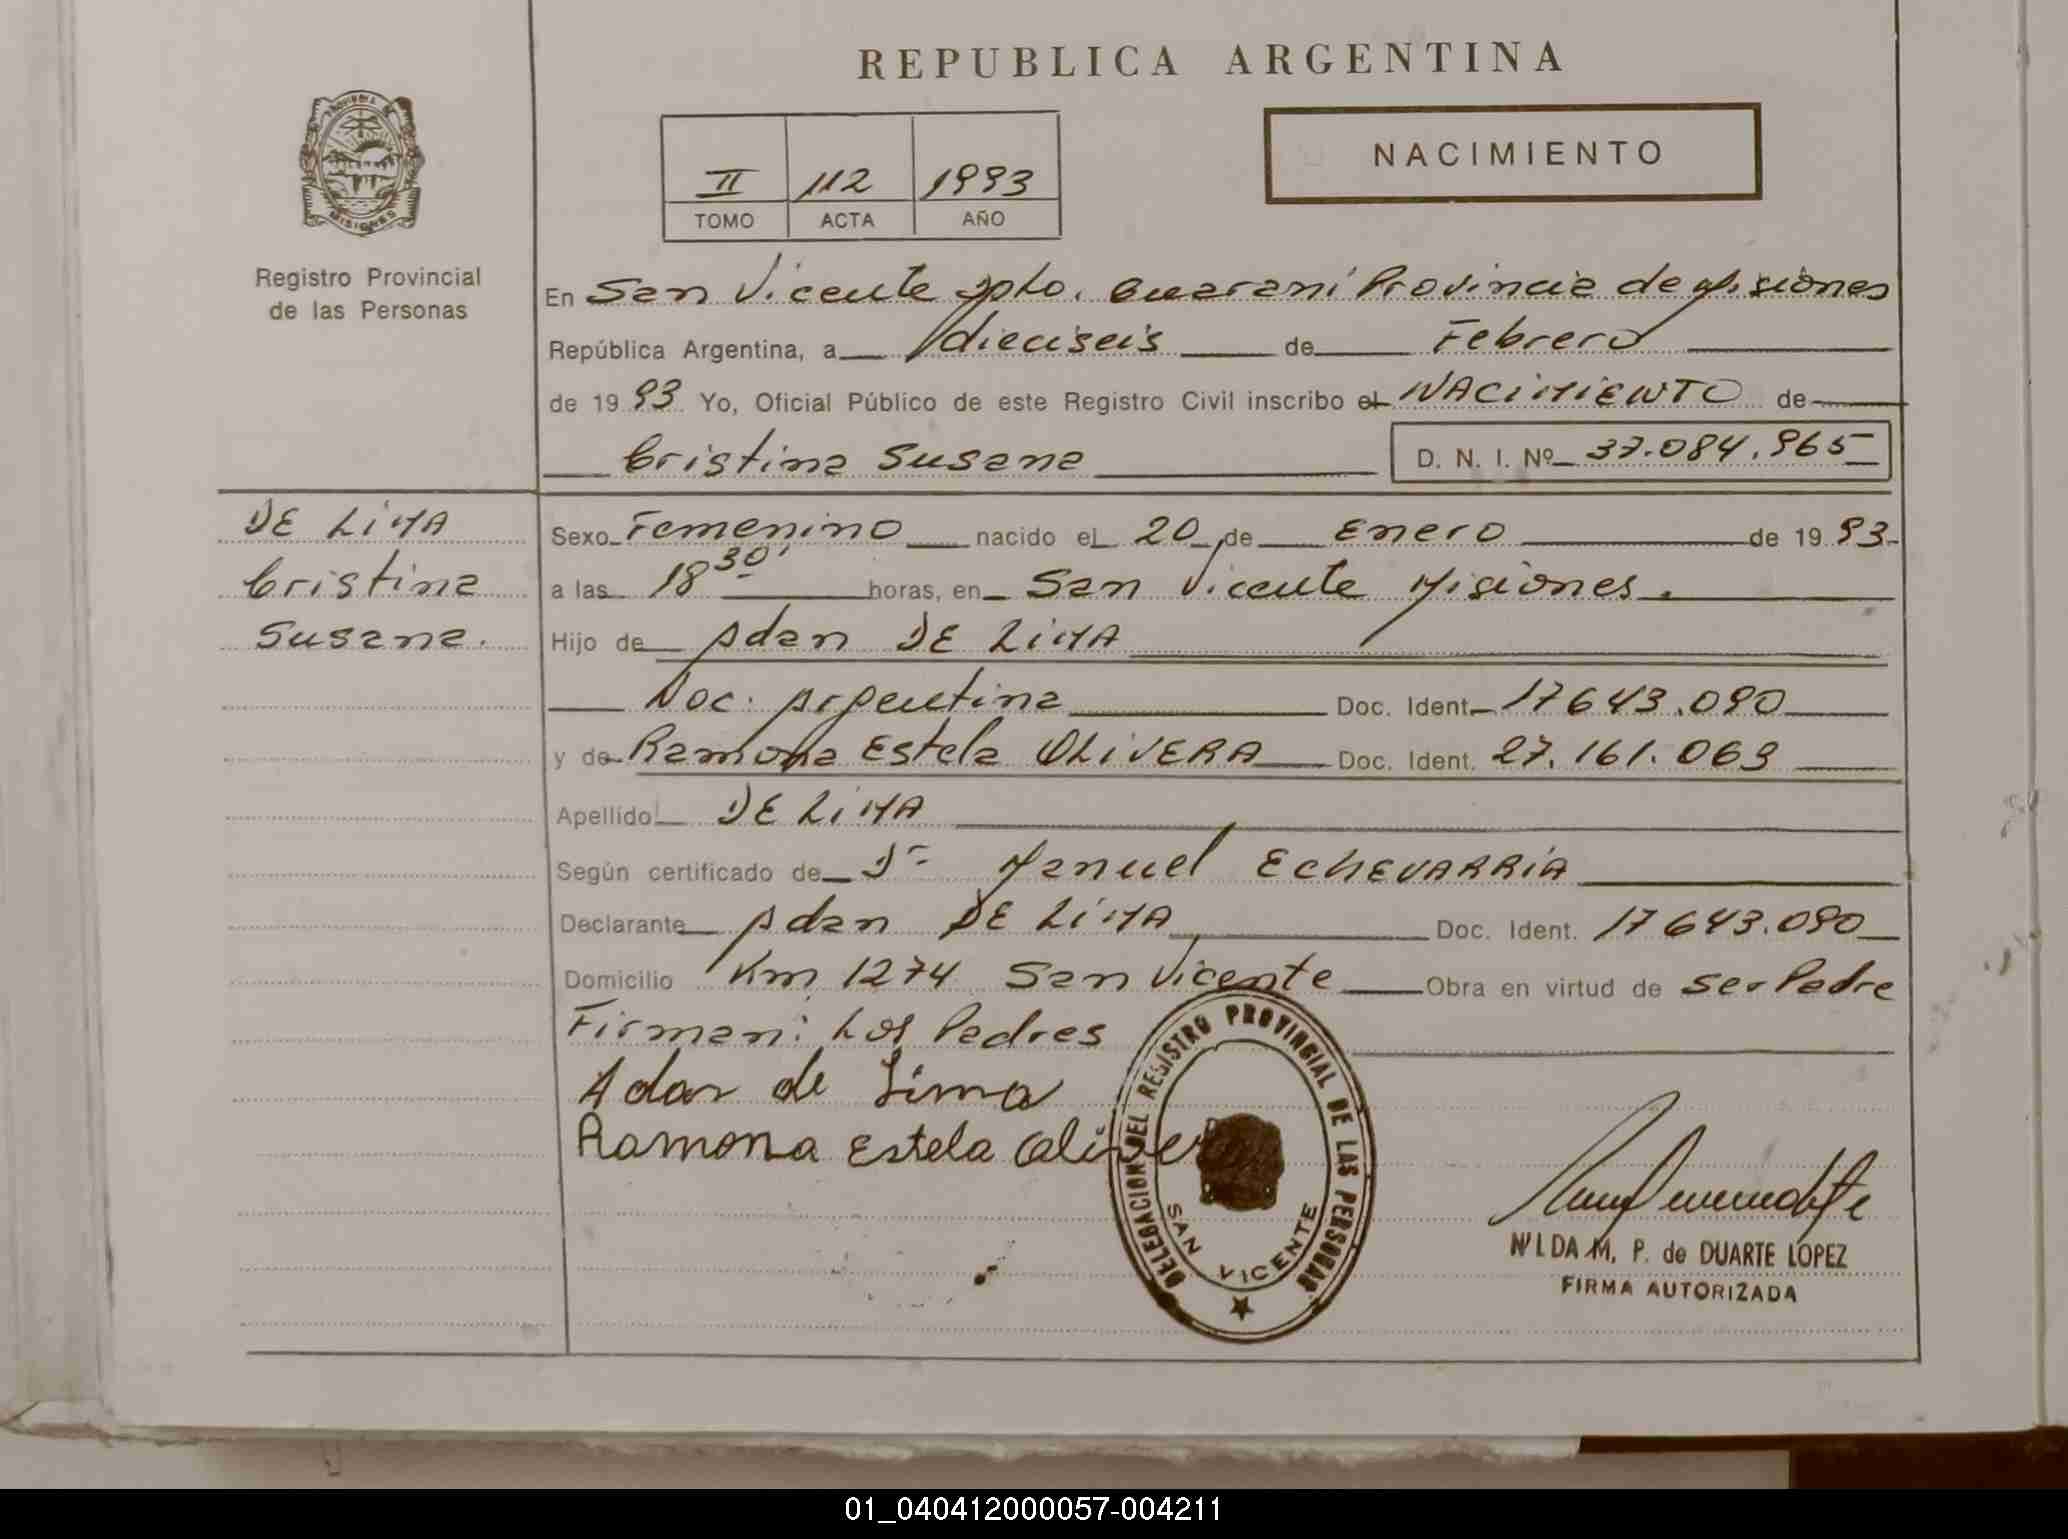 REPUBLICA ARGENTINA
NACIMIENTO
II 112 1993
TOMO ACTA AÑO
PROVINCIA DE MISIONES
Registro Provincial
de las Personas
En San Vicente Dpto. Guarani Provincia de Misiones
República Argentina, a dieciseis de Febrero
de 1993 Yo, Oficial Público de este Registro Civil inscribo el NACIMIENTO de
Cristina Susana D. N. I. Nº 37.084.965
DE LIMA
Cristina
Susana.
Sexo Femenino nacido el 20 de Enero de 1993
a las 18 30' horas, en San Vicente Misiones.
Hijo de Adan DE LIMA
Nac. Argentina Doc. Ident. 17643.090
y de Ramona Estela OLIVERA Doc. Ident. 27.161.069
Apellido DE LIMA
Según certificado de Dr Manuel ECHEVARRIA
Declarante Adan DE LIMA Doc. Ident. 17643.090
Domicilio Km 1274 San Vicente Obra en virtud de ser Padre
Firman: Los Padres
Adan de Lima
Ramona Estela Olivera
DELEGACION DEL REGISTRO PROVINCIAL DE LAS PERSONAS
SAN VICENTE
NILDA M. P. de DUARTE LOPEZ
FIRMA AUTORIZADA
01_040412000057-004211